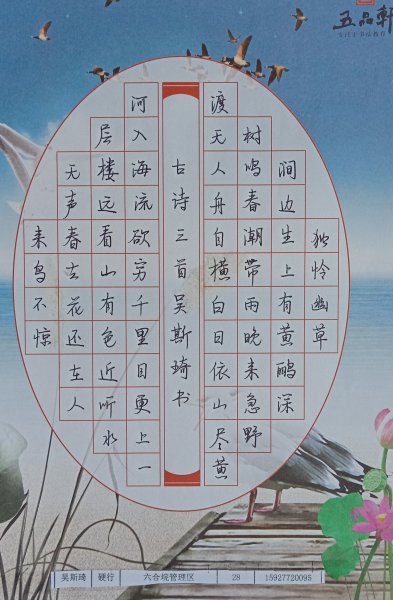 五品轩
专注于书法教育
独怜幽草
涧边生上有黄鹂深
树鸣春潮带雨晚来急野
渡无人舟自横白日依山尽黄
古诗三首吴斯琦书
河入海流欲穷千里目更上一
层楼远看山有色近听水
无声春去花还在人
来鸟不惊
吴斯琦 硬行 六合垸管理区 28 15927720095